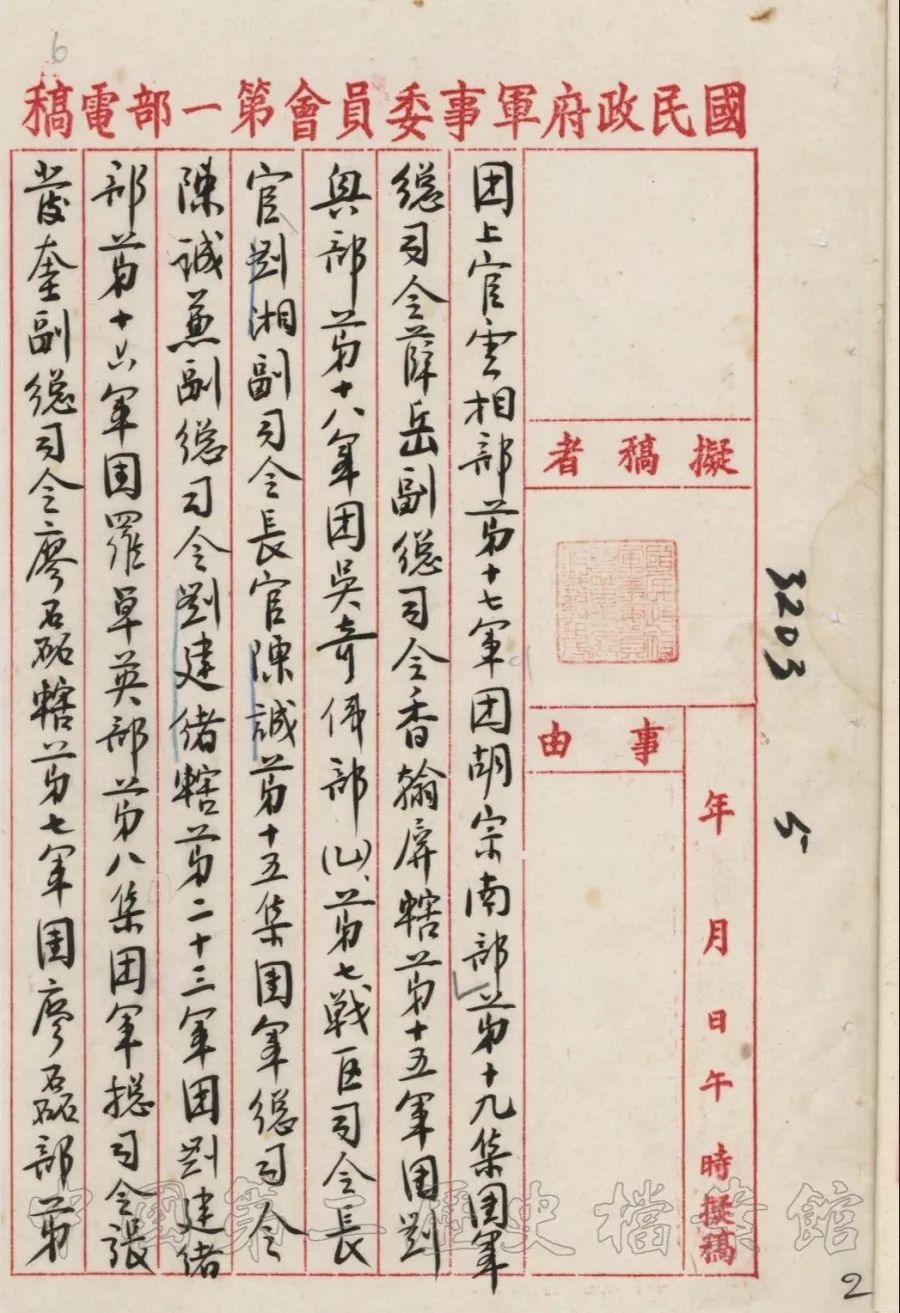 6
國民政府軍事委員會第一部電稿
擬稿者
事由
年 月 日 午 時擬稿
3203
5
团上官雲相部第十七軍团胡宗南部第十九集团軍
總司令薛岳副總司令香翰屏轄第十五軍团劉
興部第十八軍团吳奇偉部(乙)、第七戰区司令長
官劉湘副司令長官陳誠第十五集团軍總司令
陳誠兼副總司令劉建绪轄第二十三軍团劉建绪
部第十六軍团羅卓英部第八集团軍總司令張
發奎副總司令廖磊轄第七軍团廖磊部第
中國第二歷史檔案館
2